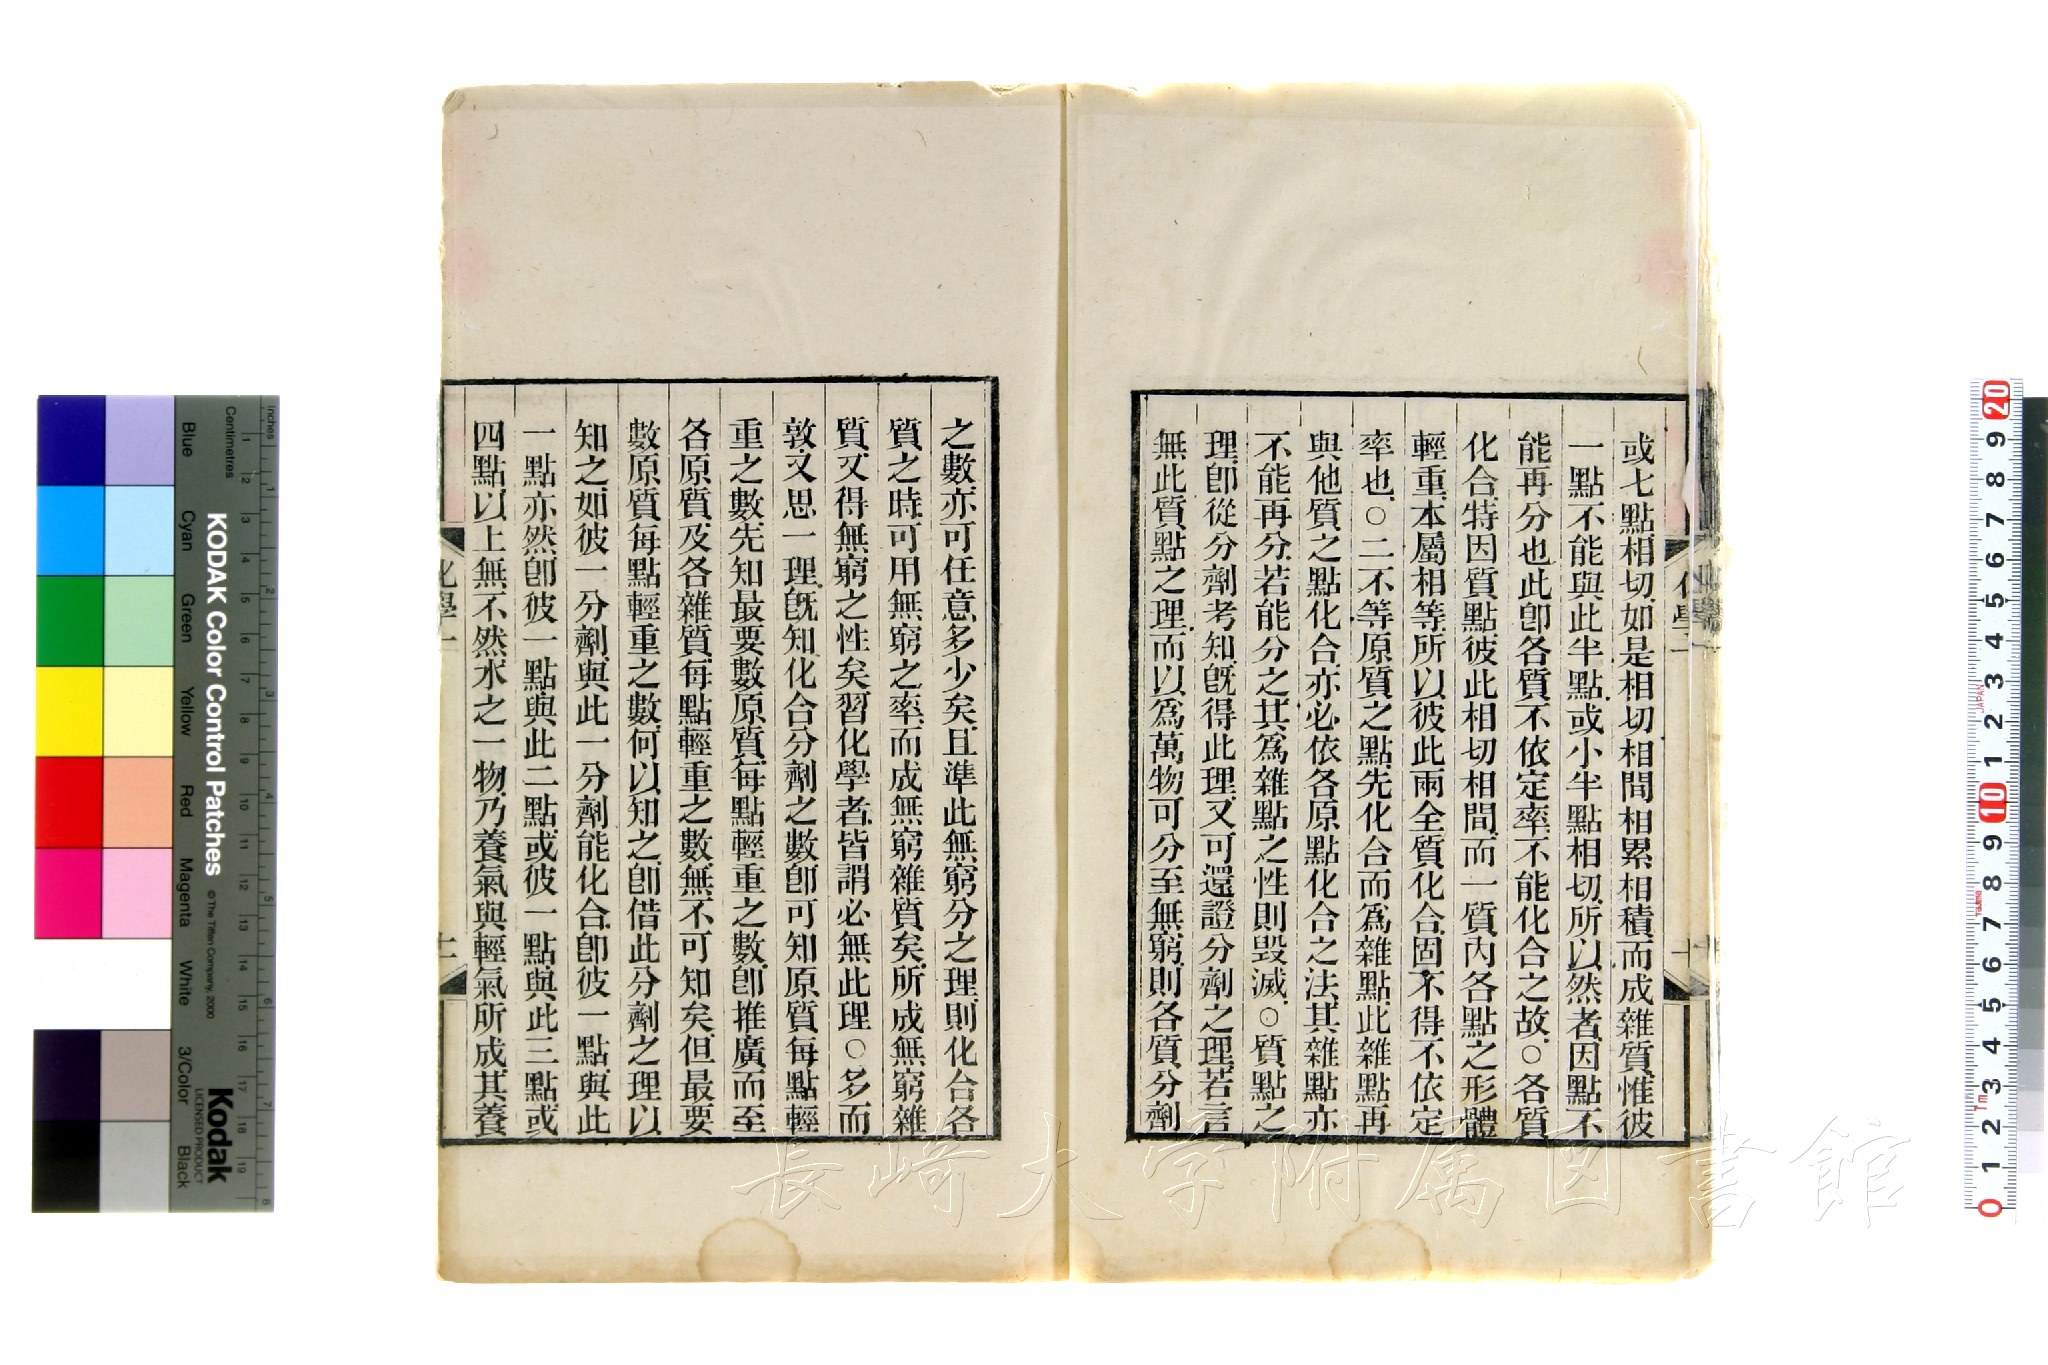 或七點相切、如是相切相間相累相積、而成雜質、惟彼
一點不能與此半點、或小半點相切、所以然者、因點不
能再分也、此卽各質不依定率、不能化合之故、○各質
化合、特因質點彼此相切相間、而一質內各點之形體
輕重、本屬相等、所以彼此兩全質化合、固不得不依定
率也、○二不等原質之點、先化合而爲雜點、此雜點再
與他質之點化合、亦必依各原點化合之法、其雜點亦
不能再分、若能分之、其爲雜點之性則毀滅、○質點之
理、卽從分劑考知、旣得此理、又可還證分劑之理、若言
無此質點之理、而以爲萬物可分至無窮、則各質分劑
之數、亦可任意多少矣、且準此無窮分之理、則化合各
質之時、可用無窮之率、而成無窮雜質矣、所成無窮雜
質、又得無窮之性矣、習化學者、皆謂必無此理、○多而
敦又思一理、旣知化合分劑之數、卽可知原質每點輕
重之數、先知最要數原質每點輕重之數、卽推廣而至
各原質、及各雜質、每點輕重之數、無不可知矣、但最要
數原質、每點輕重之數、何以知之、卽借此分劑之理以
知之、如彼一分劑、與此一分劑能化合、卽彼一點、與此
一點亦然、卽彼一點、與此二點、或彼一點、與此三點、或
四點以上、無不然、水之一物、乃養氣與輕氣所成、其養
化學一
十
長崎大学附属図書館
KODAK Color Control Patches
© The Tiffen Company, 2000
Kodak
LICENSED PRODUCT
Inches
Centimetres
Blue
Cyan
Green
Yellow
Red
Magenta
White
3/Color
Black
JAPAN
Tajima